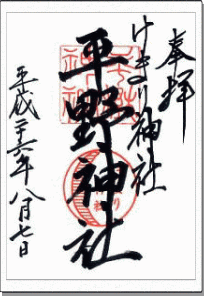 奉拝
けまり神社
平野神社
平成二十六年八月七日